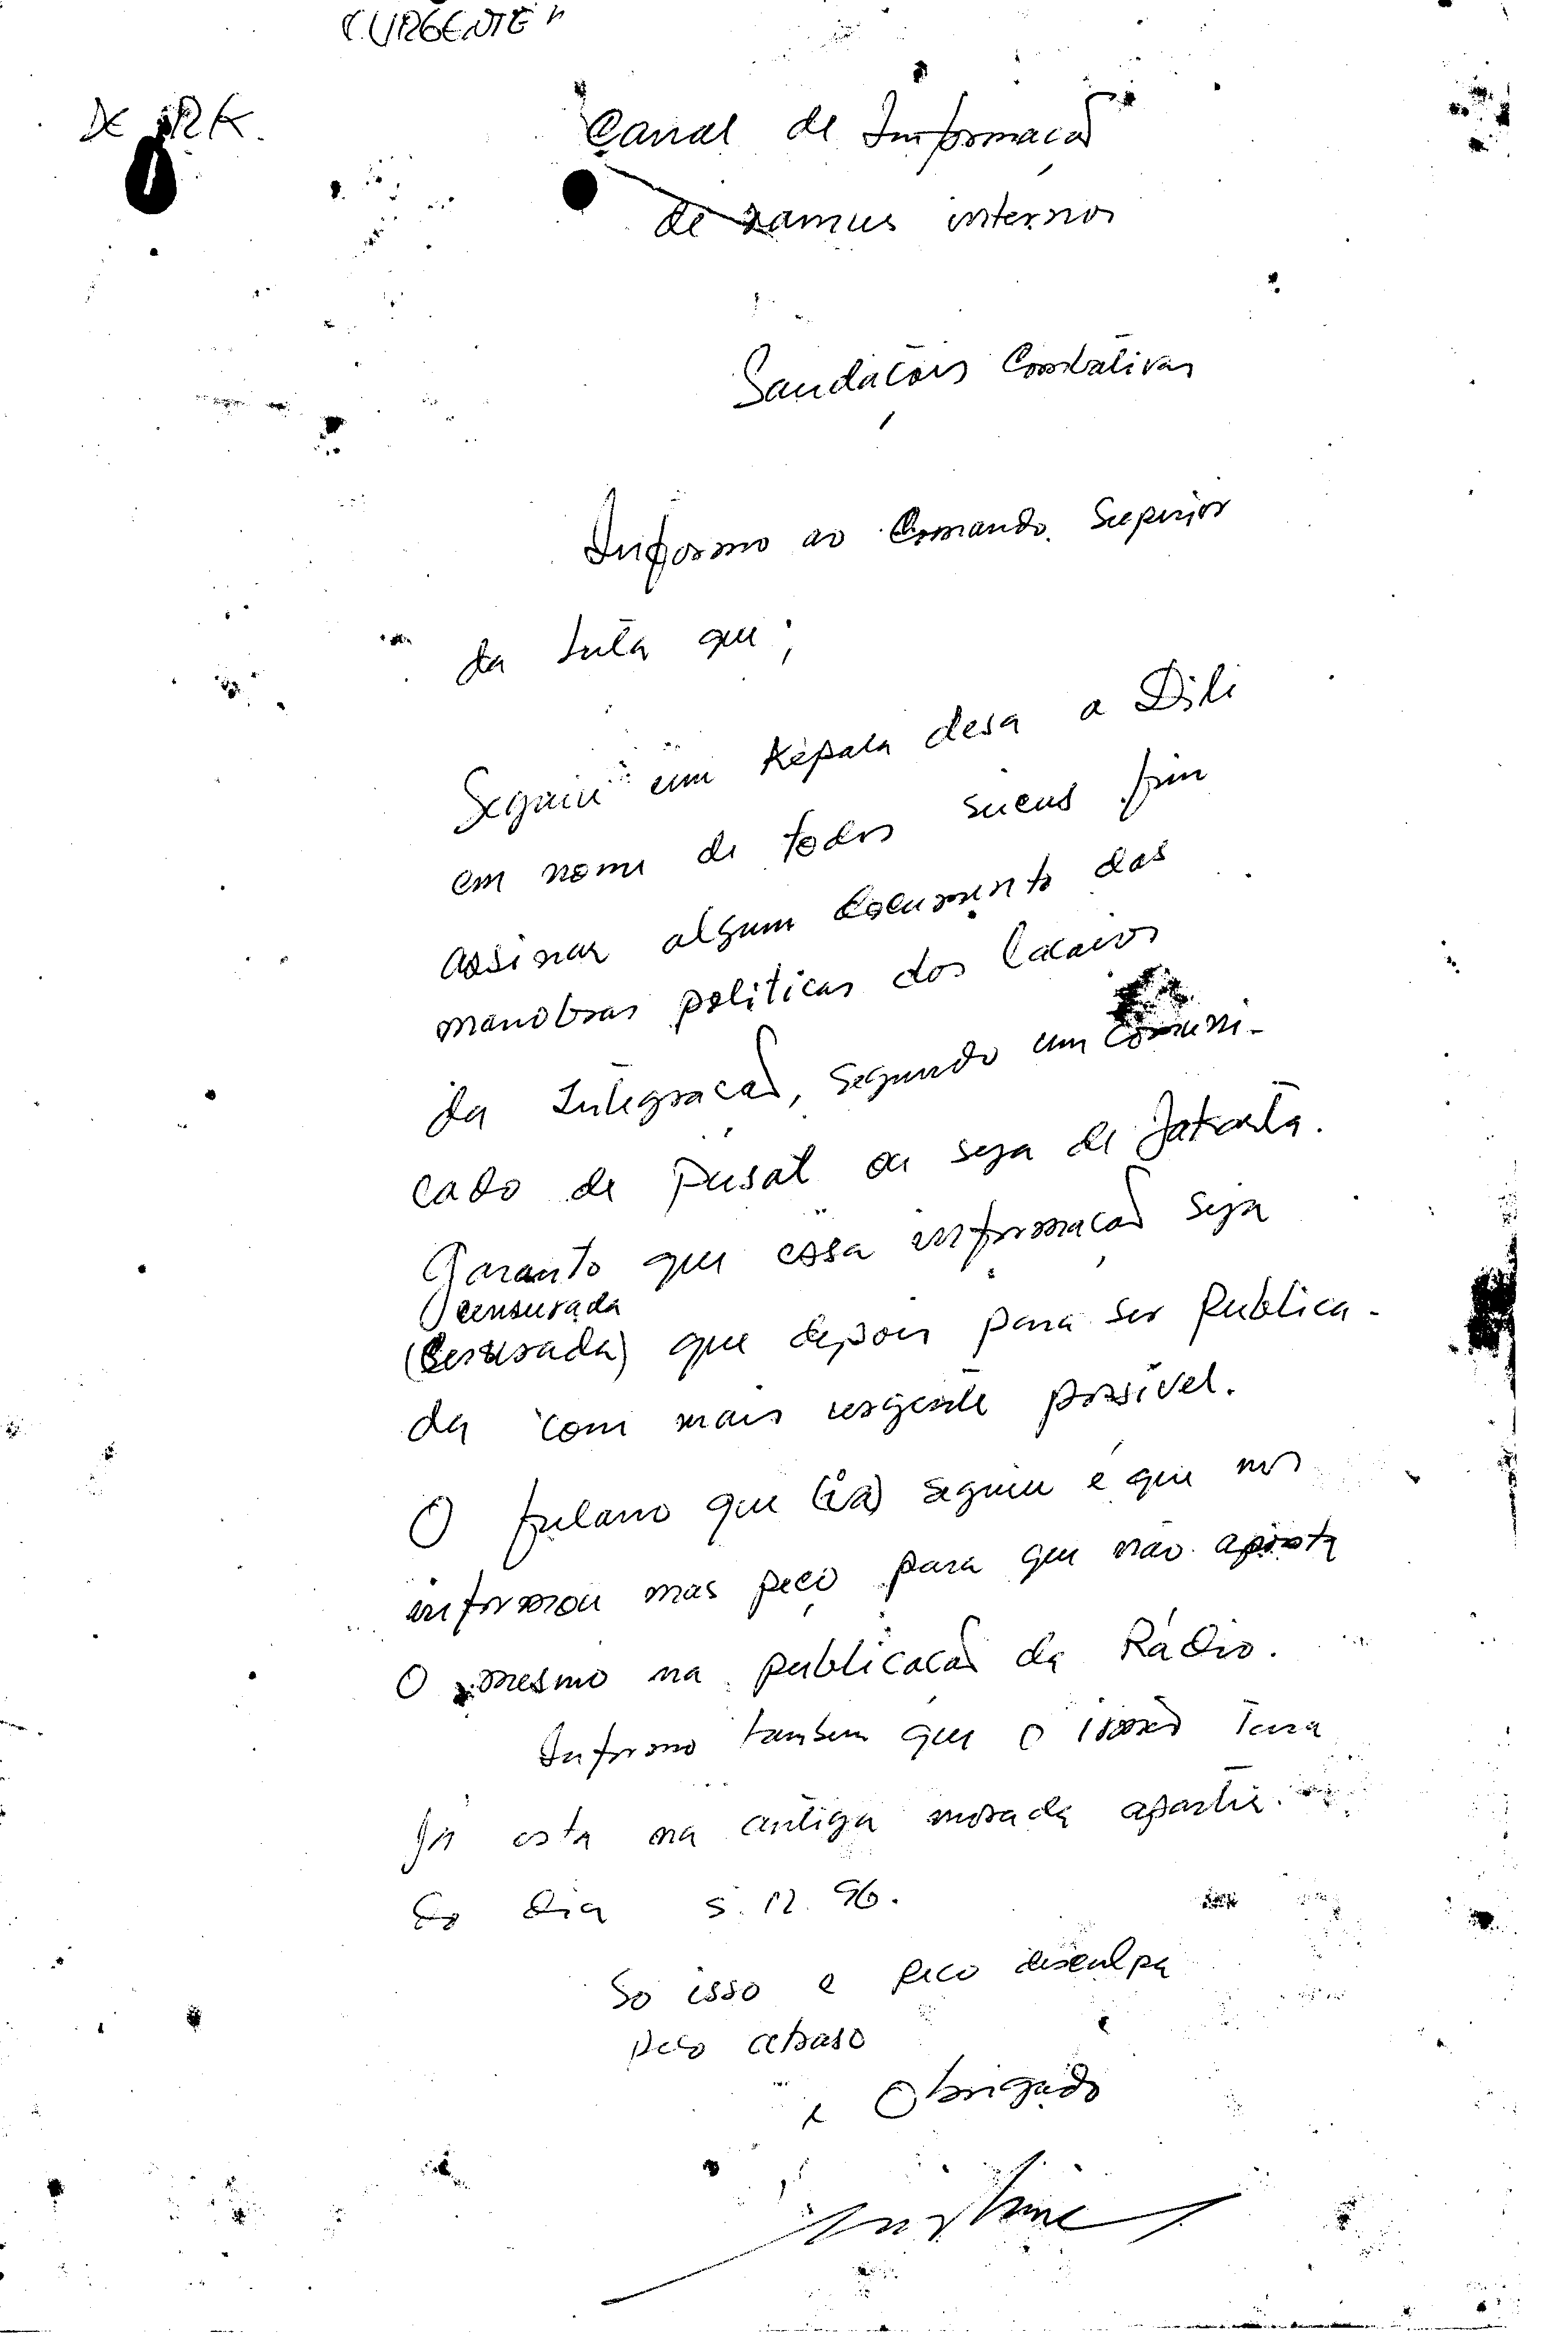 "URGENTE"
DE RK.
Canal de Informação
de ramus internos
Saudações Combativas
Informo ao Comando Superior
da Luta que;
Seguiu um Kepala desa a Dili
em nome de todos sucus fim
assinar algum documento das
manobras politicas dos lacaios
da Integração, segundo um comuni-
cado de Pusat ou seja de Jakarta.
Garanto que essa informação seja
censurada
(Cesurada) que depois para ser publica-
da com mais urgente possível.
O fulano que (ia) seguiu é que nos
informou mas peço para que não aponta
o mesmo na publicação da Rádio.
Informo tambem que o irmão
Já esta na antiga morada apartir
do dia 5.12.96.
So isso e peço desculpa
pelo atraso
e Obrigado